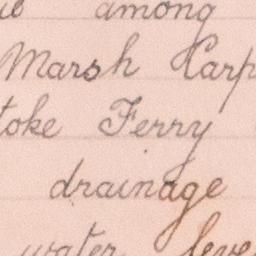 among
Marsh Carp
toke Ferry
drainage
water leve